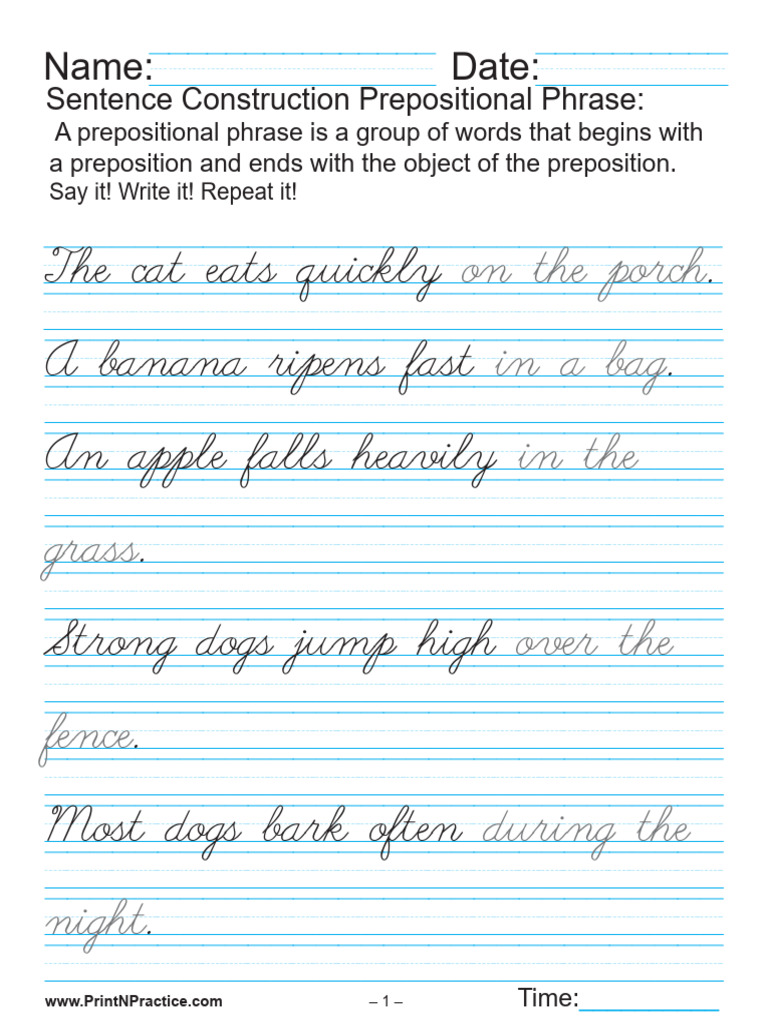 Name: Date:
Sentence Construction Prepositional Phrase:
A prepositional phrase is a group of words that begins with
a preposition and ends with the object of the preposition.
Say it! Write it! Repeat it!
The cat eats quickly on the porch.
A banana ripens fast in a bag.
An apple falls heavily in the
grass.
Strong dogs jump high over the
fence.
Most dogs bark often during the
night.
www.PrintNPractice.com – 1 – Time: